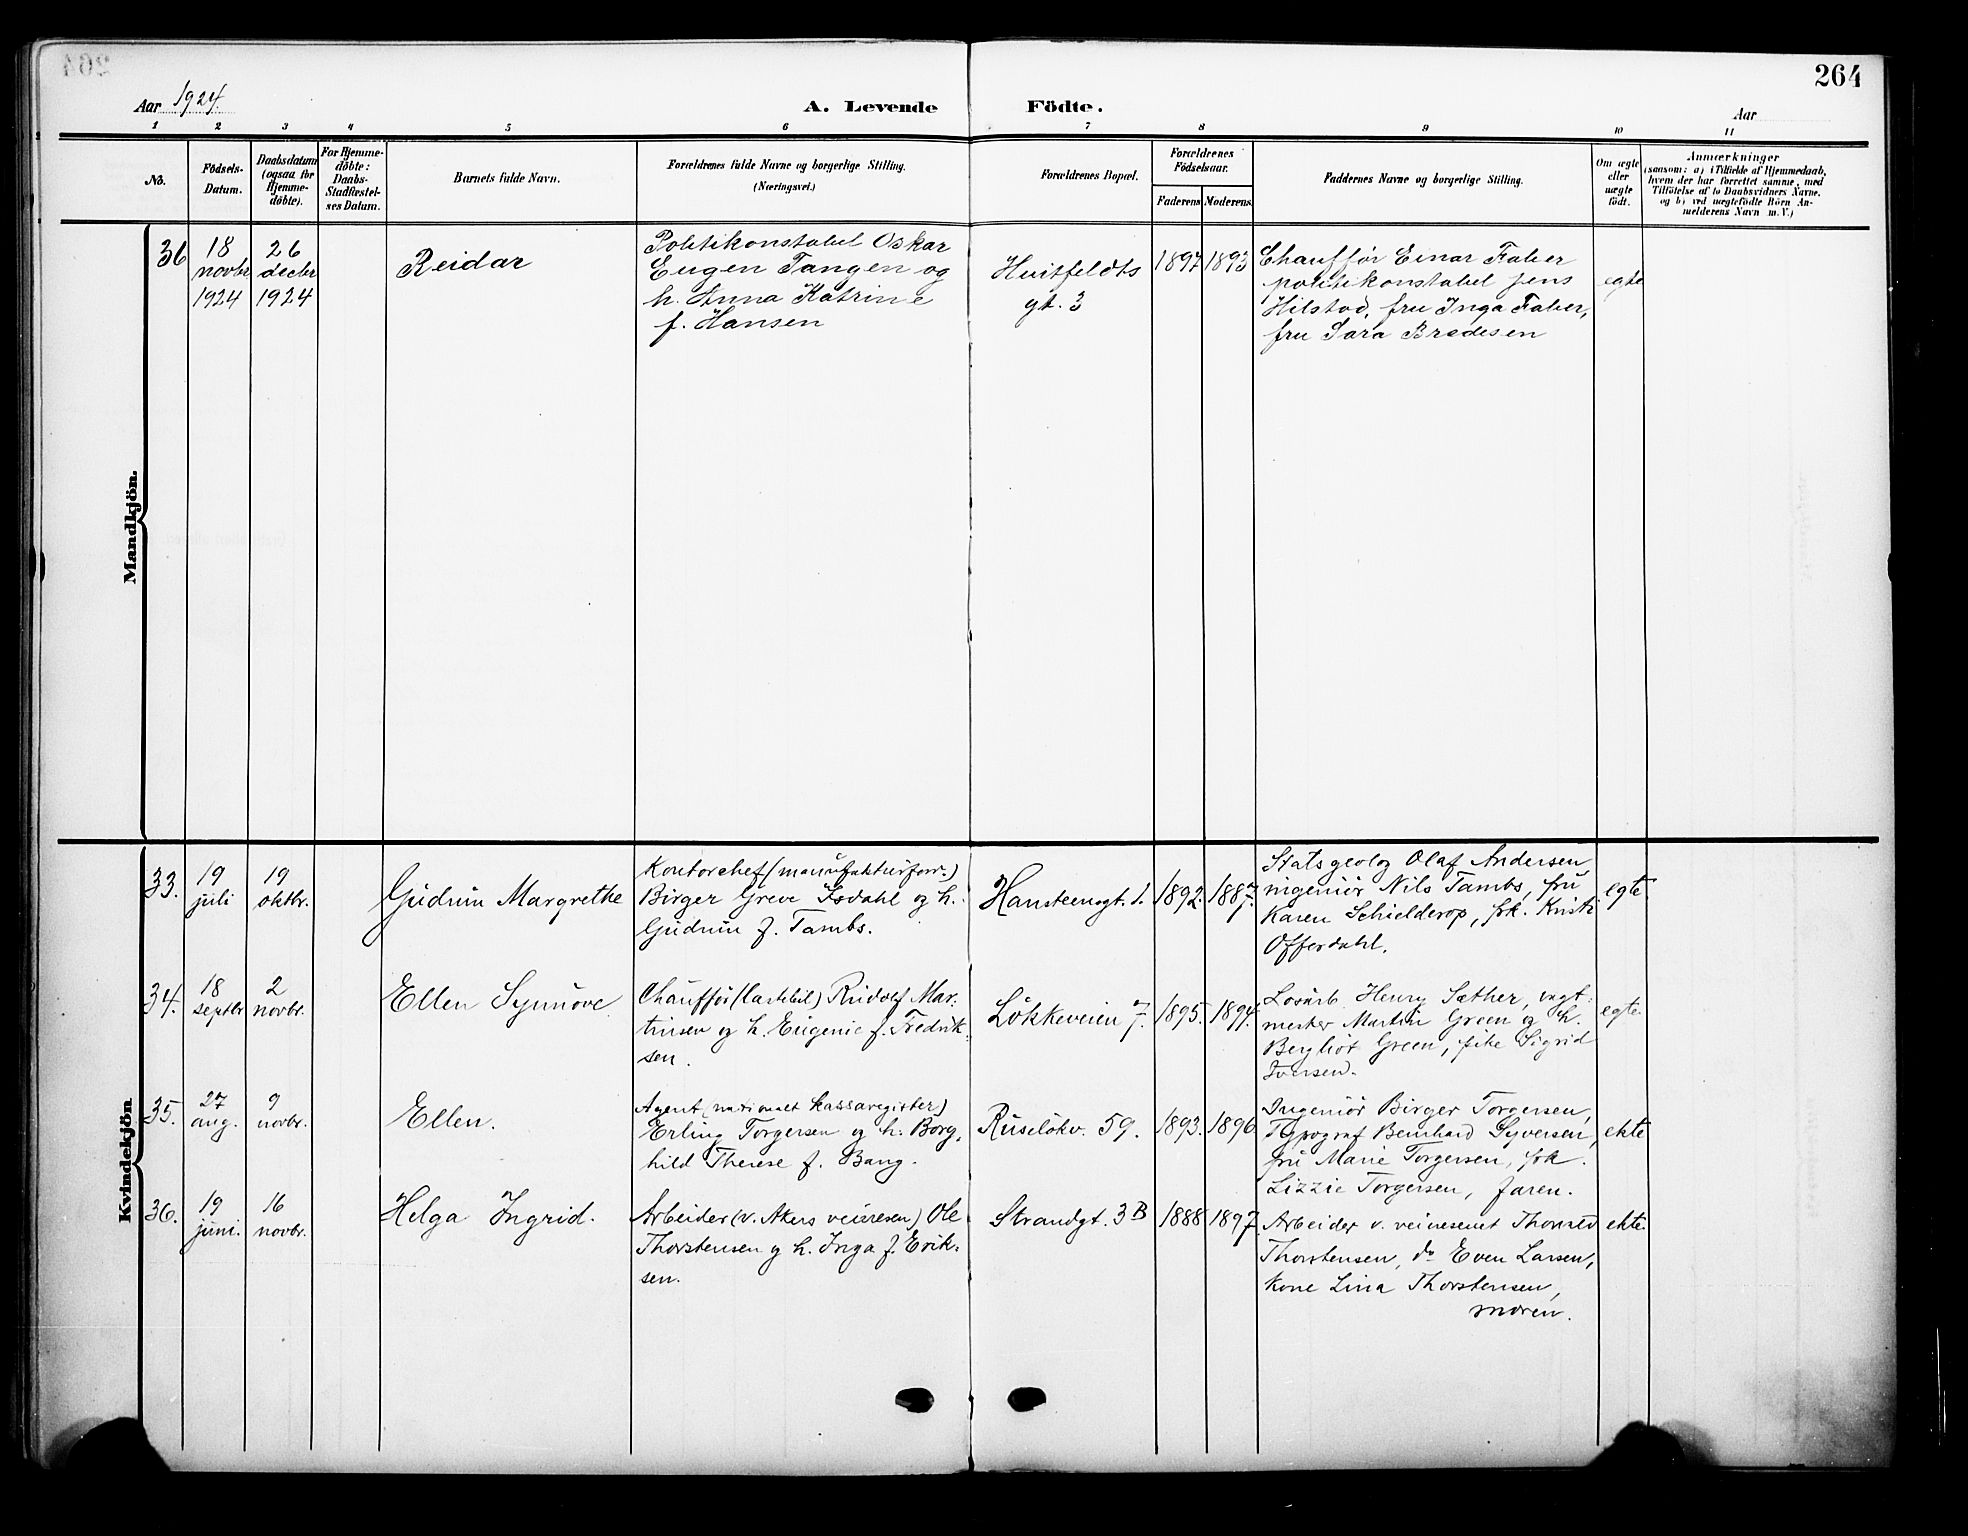 264
Aar 1924.
A. Levende Födte.
Aar
1 2 3 4 5 6 7 8 9 10 11
No.
Födsels-
Datum.
Daabsdatum
(ogsaa for
Hjemme-
döbte).
For Hjemme-
döbte:
Daabs-
Stadfæstel-
ses Datum.
Barnets fulde Navn.
Forældrenes fulde Navne og borgerlige Stilling.
(Næringsvei.)
Forældrenes Bopæl.
Forældrenes
Födselsaar.
Faderens
Moderens
Faddernes Navne og borgerlige Stilling.
Om ægte
eller
uægte
födt.
Anmærkninger
(saasom: a) i Tilfælde af Hjemmedaab,
hvem der har forrettet samme, med
Tilföielse af to Daabsvidners Navne,
og b) ved uægtefödte Börn An-
melderens Navn m. V.)
Mandkjön.
36
18
novbr
1924
26
decbr
1924
Reidar
Politikonstabel Oskar
Eugen Tangen og
h. Anna Katrine
f. Hansen
Huitfeldts
gt. 3
1897
1893
Chauffør Einar Faber
politikonstabel Jens
Hilstad, fru Inga Faber,
fru Sara Bredesen
egte
Kvindekjön
33.
19
juli
19
oktbr.
Gudrun Margrethe
Kontorchef (manufakturforr.)
Birger Greve Isdahl og h.
Gudrun f. Tambs.
Hansteensgt. 1.
1892.
1887.
Statsgeolog Olaf Andersen
ingeniør Nils Tambs, fru
Karen Schielderop, frk. Kristi
Offerdahl.
egte.
34.
18
septbr
2
novbr.
Ellen Synnøve
Chauffør (lastebil) Rudolf Mar-
tinsen og h. Eugenie f. Fredrik-
sen.
Løkkeveien 7.
1895.
1894.
Løsarb. Henry Sæther, vagt-
mester Martin Green og h.
Bergliot Green, pike Sigrid
Iversen.
egte.
35.
27
aug.
9
novbr.
Ellen.
Agent (nationalt kassaregister)
Erling Torgersen og h. Borg-
hild Therese f. Bang.
Ruseløkv. 59.
1893.
1896
Ingeniør Birger Torgersen,
Typograf Bernhard Syversen,
fru Marie Torgersen, frk.
Lizzie Torgersen, faren.
ekte
36.
19
juni.
16
novbr.
Helga Ingrid.
Arbeider (v. Akers veivesen) Ole
Thorstensen og h. Inga f. Erik-
sen.
Strandgt. 3 B
1888
1897
Arbeider v. veivesenet Thorvald
Thorstensen, do Even Larsen,
kone Lina Thorstensen,
moren.
ekte.